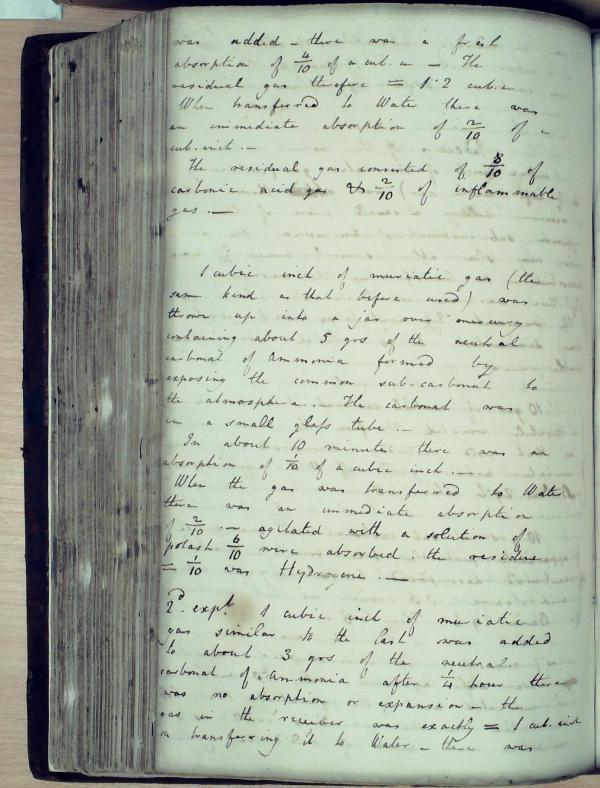 was added - there was a fresh
absorption of 4/10 of a cub. in - The
residual gas therefore = 1.2 cub. in
When transferred to Water there was
an immediate absorption of 2/10 of a
cub. inch. -
The residual gas consisted of 8/10 of
carbonic acid gas & 2/10 of inflammable
gas. -
1 cubic inch of muriatic gas (the
same kind as that before used) was
thrown up into a jar over mercury
containing about 5 grs of the neutral
carbonat of Ammonia formed by
exposing the common sub-carbonat to
the atmosphere. The carbonat was
in a small glass tube. -
In about 10 minutes there was an
absorption of 1/10 of a cubic inch. -
When the gas was transferred to Water
there was an immediate absorption
of 2/10 . - agitated with a solution of
potash 6/10 were absorbed. the residue
= 1/10 was Hydrogene. -
2d. expt. 1 cubic inch of muriatic
gas similar to the last was added
to about 3 grs of the neutral
carbonat of Ammonia after 1/4 hour there
was no absorption or expansion - the
gas in the receiver was exactly = 1 cub. inch
on transferring it to Water - there was